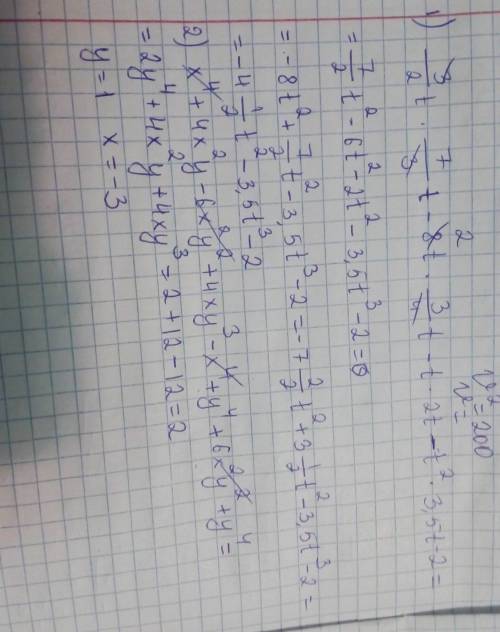 v² = 200
1) 3/2 t · 7/3 t - 8t · 3/4 t - t · 2t - t² · 3,5t - 2 =
= 7/2 t² - 6t² - 2t² - 3,5t³ - 2 = 0
= -8t² + 7/2 t² - 3,5t³ - 2 = -7 2/2 t² + 3 1/2 t² - 3,5t³ - 2 =
= -4 1/2 t² - 3,5t³ - 2
2) x⁴ + 4x²y - 6x²y² + 4xy³ - x⁴ + y⁴ + 6x²y² + y⁴ =
= 2y⁴ + 4x²y + 4xy³ = 2 + 12 - 12 = 2
y = 1 x = -3